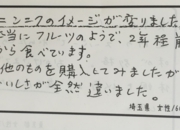 ニンニクのイメージが変りました
当にフルーツのようで、2年経
から食べています。
他のものを購入してみましたが
いしさが全然違いました。
埼玉県 女性